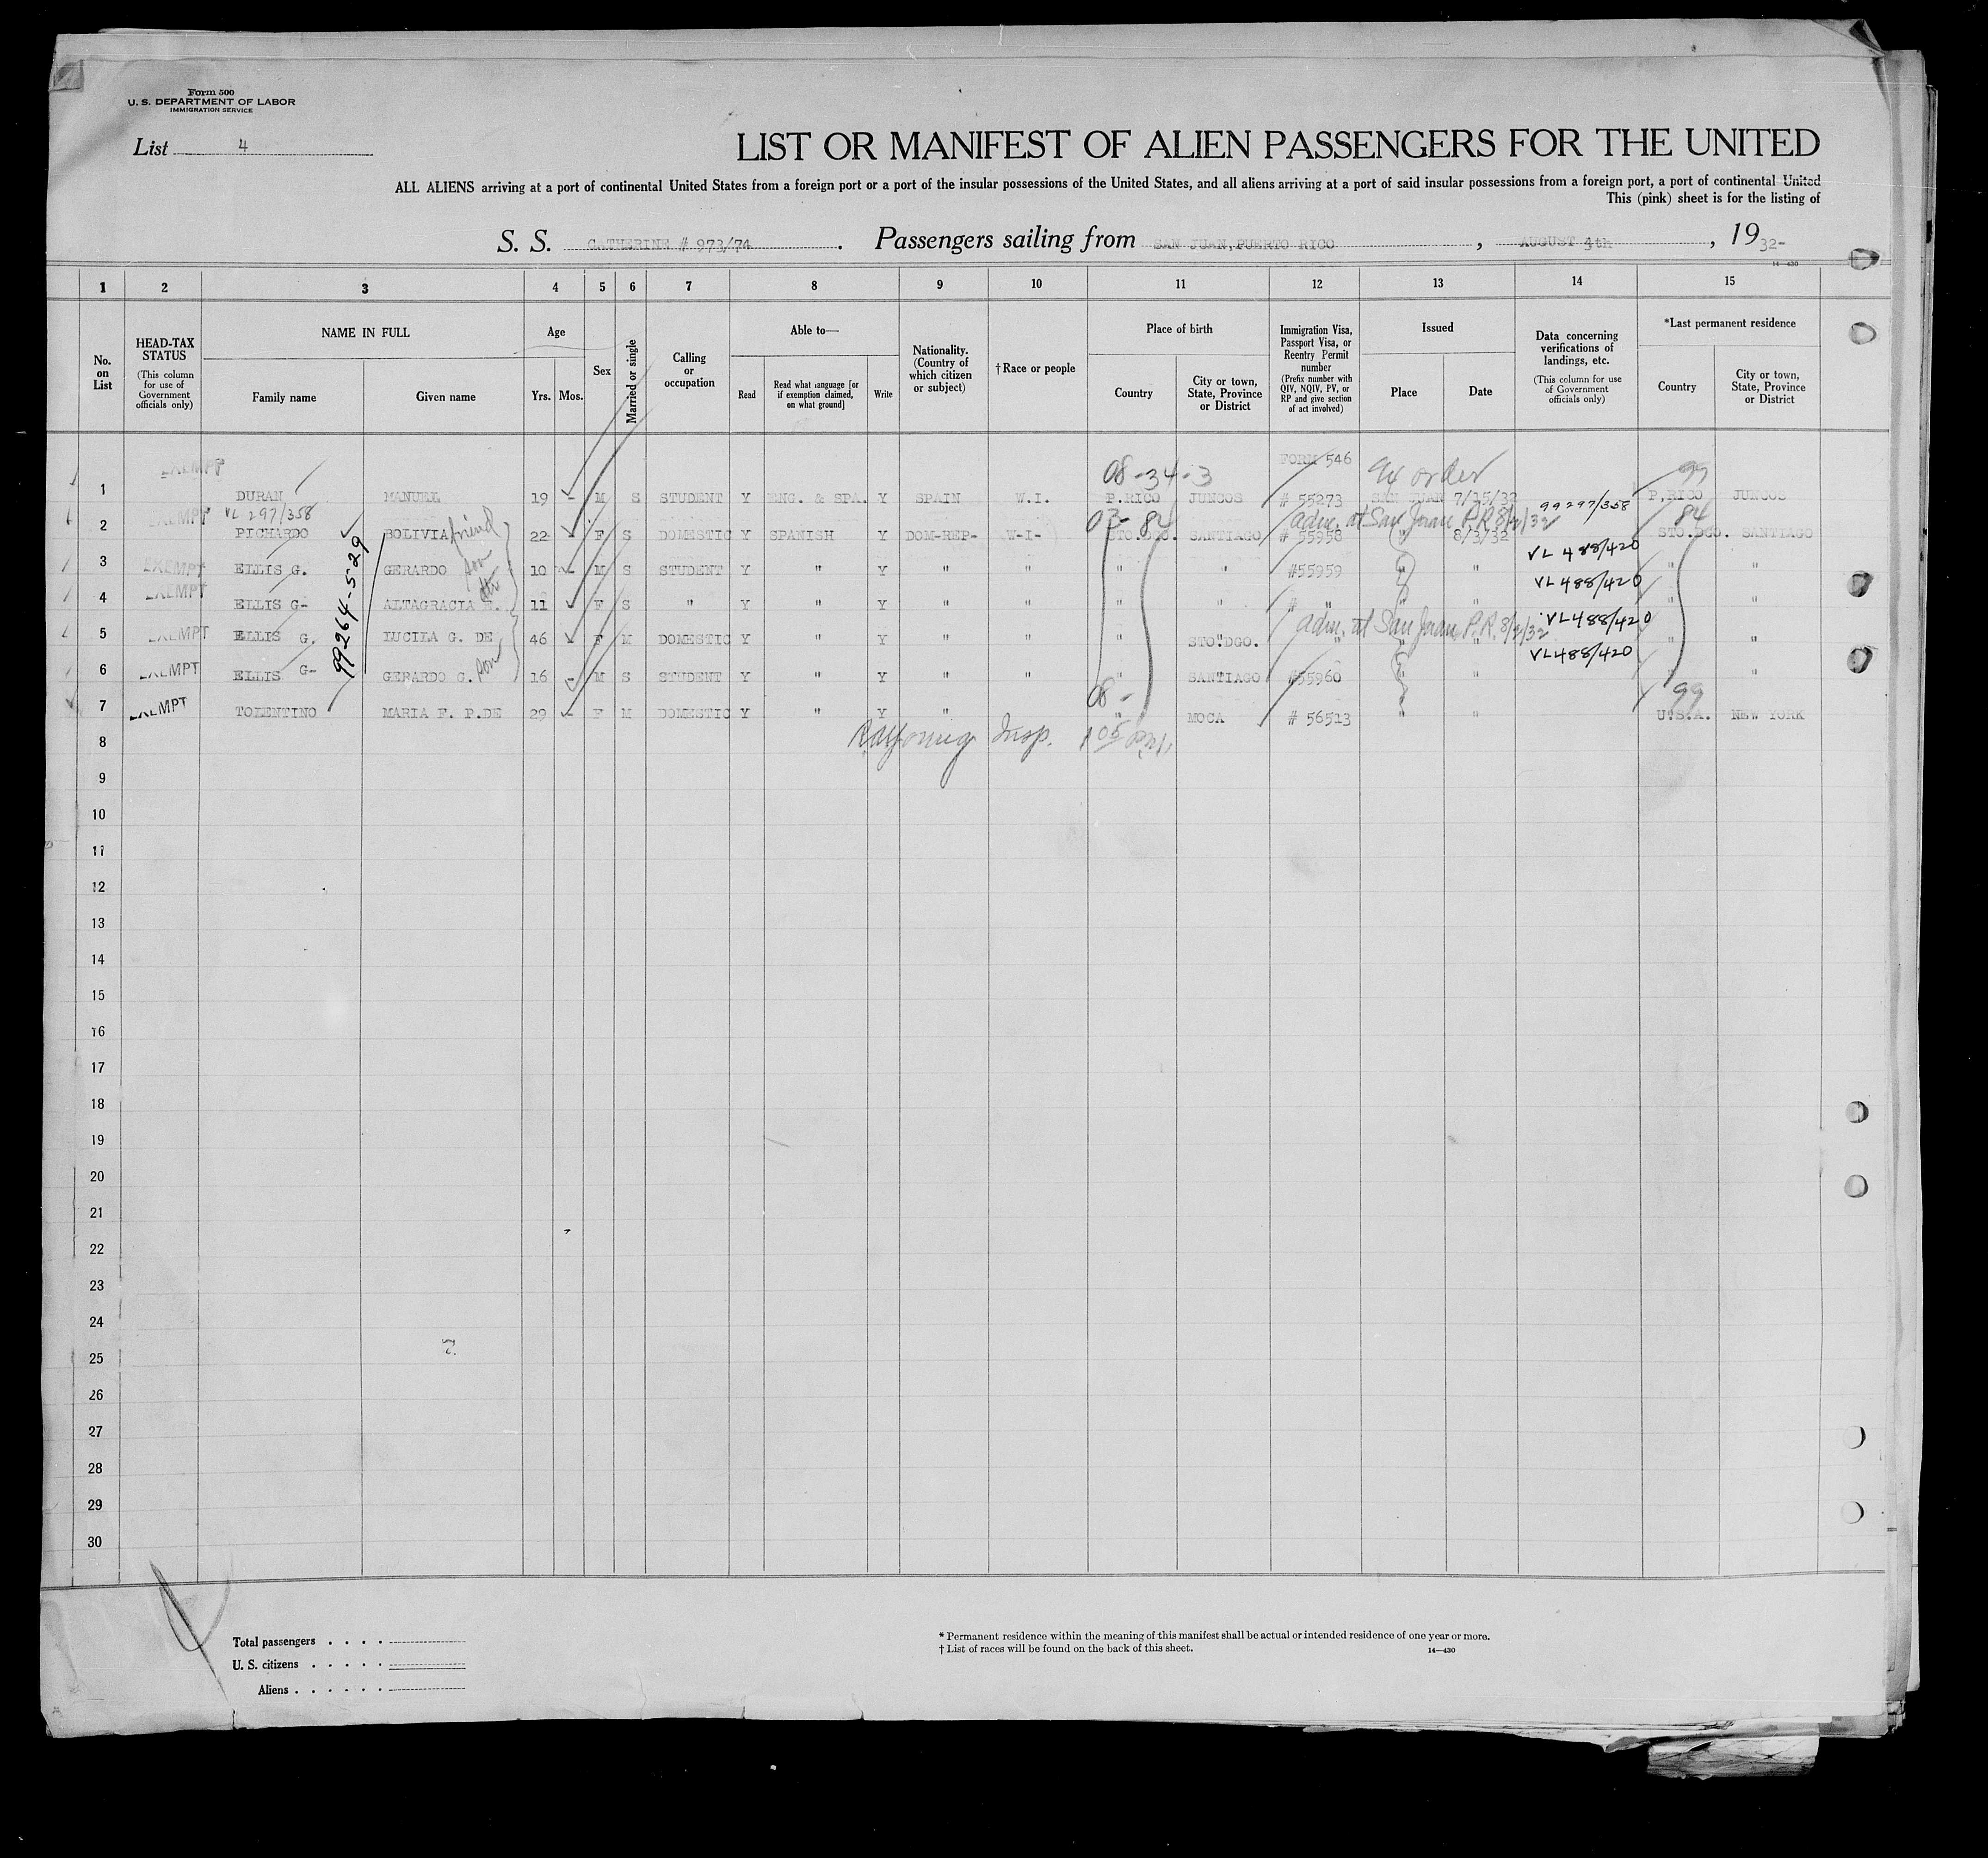 Form 500
U. S. DEPARTMENT OF LABOR
IMMIGRATION SERVICE
List 4
LIST OR MANIFEST OF ALIEN PASSENGERS FOR THE UNITED
ALL ALIENS arriving at a port of continental United States from a foreign port or a port of the insular possessions of the United States, and all aliens arriving at a port of said insular possessions from a foreign port, a port of continental United
This (pink) sheet is for the listing of
S. S. CATHERINE # 973/74 . Passengers sailing from SAN JUAN, PUERTO RICO , AUGUST 4th , 19 32-
14—430
1 2 3 4 5 6 7 8 9 10 11 12 13 14 15
No. on List
HEAD-TAX STATUS (This column for use of Government officials only)
NAME IN FULL
Family name
Given name
Age
Yrs. Mos.
Sex
Married or single
Calling or occupation
Able to—
Read
Read what language [or if exemption claimed, on what ground]
Write
Nationality. (Country of which citizen or subject)
† Race or people
Place of birth
Country
City or town, State, Province or District
Immigration Visa, Passport Visa, or Reentry Permit number (Prefix number with QIV, NQIV, PV, or RP and give section of act involved)
Issued
Place
Date
Data concerning verifications of landings, etc. (This column for use of Government officials only)
*Last permanent residence
Country
City or town, State, Province or District
EXEMPT 08-34-3 FORM 546 Ex order 99
1 DURAN MANUEL 19 - M S STUDENT Y ENG. & SPA. Y SPAIN W.I. P.RICO JUNCOS # 55273 SAN JUAN 7/15/32 99297/358 P,RICO JUNCOS
VL 297/358
03- 84 adm. at San Juan P.R 8/2/32 84
2 EXEMPT PICHARDO BOLIVIA friend 22 - F S DOMESTIC Y SPANISH Y DOM-REP- W-I- STO.DGO. SANTIAGO # 55958 " 8/3/32 VL 488/420 STO.DGO. SANTIAGO
99264-5-29
3 EXEMPT ELLIS G. GERARDO son 10 - M S STUDENT Y " Y " " " " #55959 " " VL 488/420 " "
4 EXEMPT ELLIS G- ALTAGRACIA E. dtr 11 F S " Y " Y " " " " # " " " VL488/420 " "
5 EXEMPT ELLIS G. LUCILA G. DE 46 - F M DOMESTIC Y " Y " " " STO.DGO. " adm. at San Juan P.R. 8/2/32 VL488/420 " "
6 EXEMPT ELLIS G- GERARDO G. son 16 - M S STUDENT Y " Y " " " SANTIAGO #55960 " " " "
08- 99
7 EXEMPT TOLENTINO MARIA F. P.DE 29 - F M DOMESTIC Y " Y " " MOCA # 56513 " " U.S.A. NEW YORK
8 Insp.
9
10
11
12
13
14
15
16
17
18
19
20
21
22
23
24
25
26
27
28
29
30
Total passengers . . . .
U. S. citizens . . . . .
Aliens . . . . . .
* Permanent residence within the meaning of this manifest shall be actual or intended residence of one year or more.
† List of races will be found on the back of this sheet.
14—430